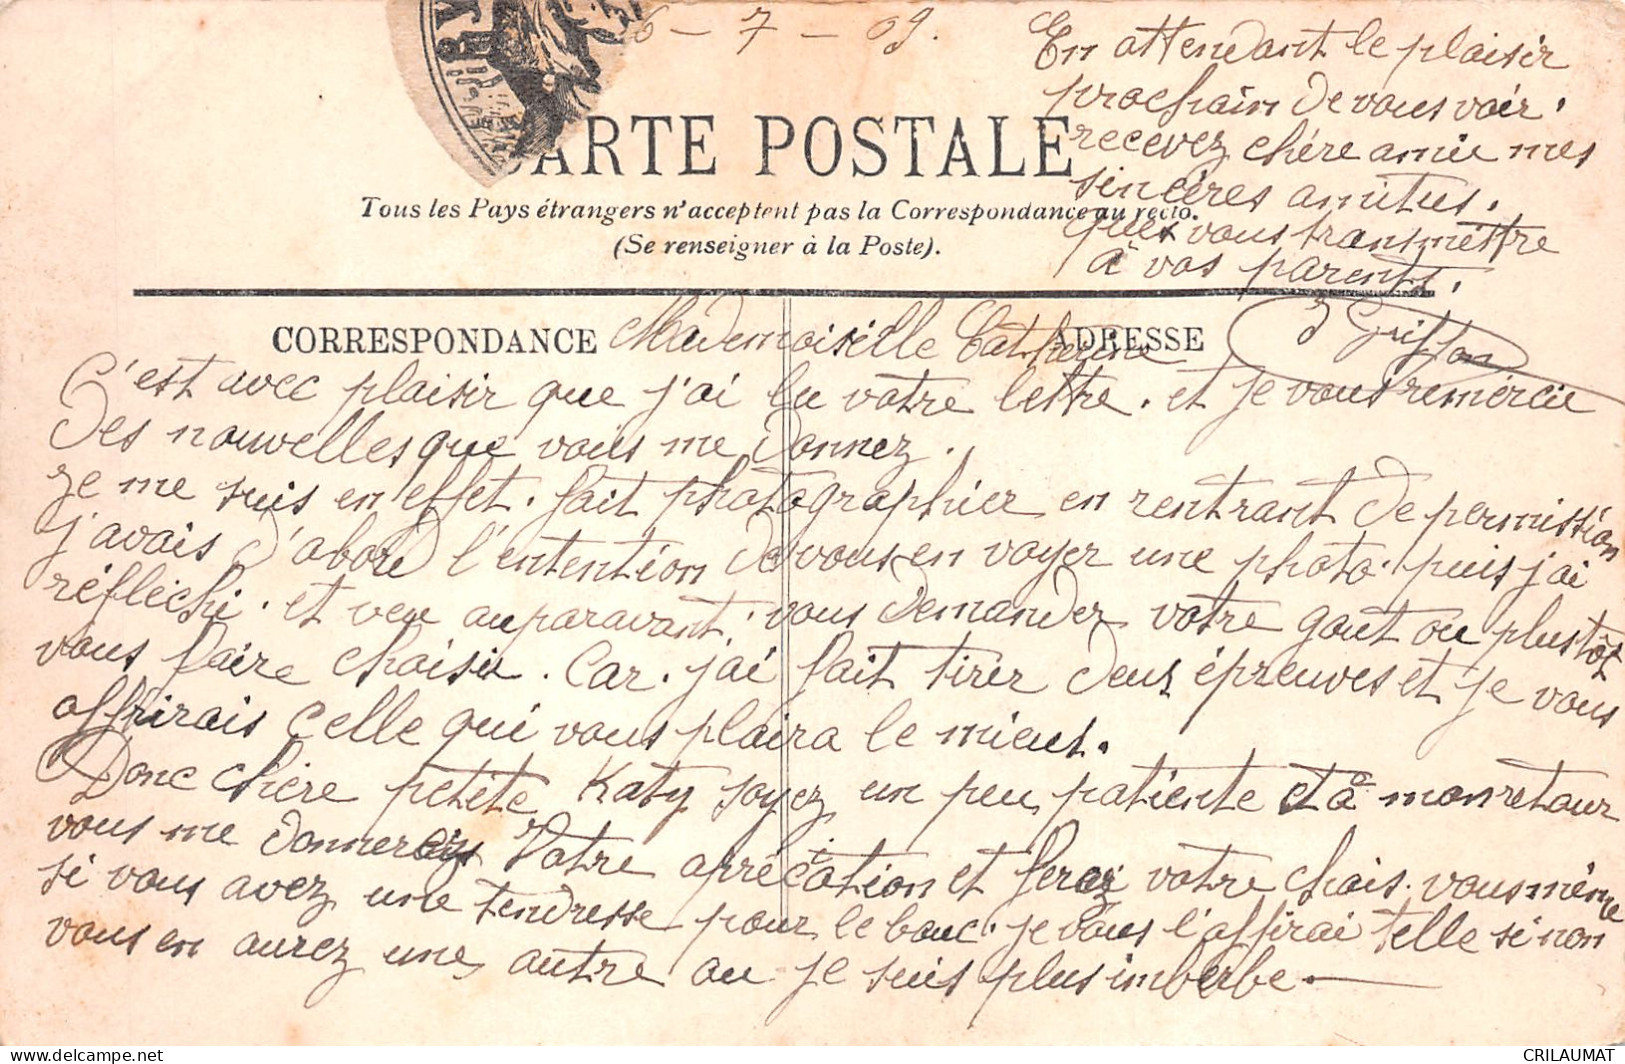 6-7-09.
CARTE POSTALE
Tous les Pays étrangers n'acceptent pas la Correspondance au recto.
(Se renseigner à la Poste).
CORRESPONDANCE
ADRESSE
Mademoiselle Catherine
C'est avec plaisir que j'ai lu votre lettre. et je vous remercie
des nouvelles que vous me donnez.
Je me suis en effet. fait photographier en rentrant de permission
j'avais d'abord l'entention de vous en voyer une photo. puis j'ai
réfléchi. et veu auparavant. vous demander votre gout ou plustôt
vous faire choisir. Car. j'ai fait tirer deux épreuves et je vous
offrirais celle qui vous plaira le mieus.
Donc chère petite Katy soyez un peu patiente et à mon retour
vous me donnerez Votre apréciation et ferez votre chois. vous même
si vous avez une tendresse pour le bouc. je vous l'offrirai telle si non
vous en aurez une autre ou je suis plus imberbe.
En attendant le plaisir
prochain de vous voir.
recevez chère amie mes
sincères amitiés.
que vous transmettre
à vos parents.
J Griffon
CRILAUMAT